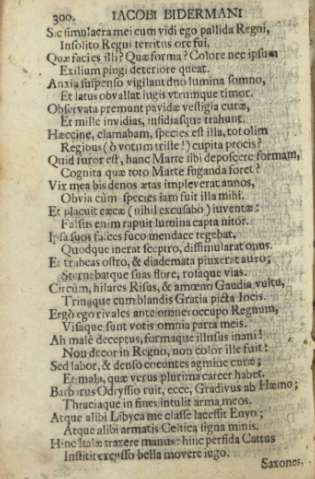 300. IACOBI BIDERMANI
Sic simulacra mei cum vidi ego pallida Regni,
Insolito Regni territus ore fui.
Quæ facies illi? Quæ forma? Colore nec ipsum
Exilium pingi deteriore queat.
Anxia suspenso vigilant dno lumina somno,
Et latus obvallat iugis vtrimque timor.
Observata premunt pavidæ vestigia curæ,
Et mille invidias, insidiasque trahunt.
Hæccine, clamabam, species est illa, tot olim
Regibus (ô votum triste!) cupita procis?
Quid furor est, hanc Marte sibi deposcere formam,
Cognita quæ toto Marte fuganda foret?
Vix mea bis denos ætas impleverat annos,
Obvia cùm species iam fuit illa mihi.
Et placuit cæcæ (nihil excusabo) iuventæ:
Falsus enim rapuit lumina capta nitor.
Ipsa suos faces fuco mendace tegebat,
Quodque inerat sceptro, dissimularat onus.
Et trabeas ostro, & diademata pinxerat auro;
Sternebatque suas flore, rosaque vias.
Circùm, hilares Risus, & amœno Gaudia vultu,
Trinaque cum blandis Gratia picta Iocis.
Ergò ego rivales ante omnes occupo Regnum,
Visaque sunt votis omnia parta meis.
Ah malè deceptus, formaque illusus inani!
Non decor in Regno, non color ille fuit:
Sed labor, & denso coeuntes agmine curæ;
Et mala, quæ verus plurima career habet.
Barbarus Odrysio ruit, ecce, Gradivus ab Hæmo;
Thraciaque in fines intulit arma meos.
Atque alibi Libyca me classe lacessit Enyo;
Atque alibi armatis Celtica signa minis.
Hinc Italæ traxere manus: hinc perfida Cattus
Institit excusso bella movere iugo.
Saxones.